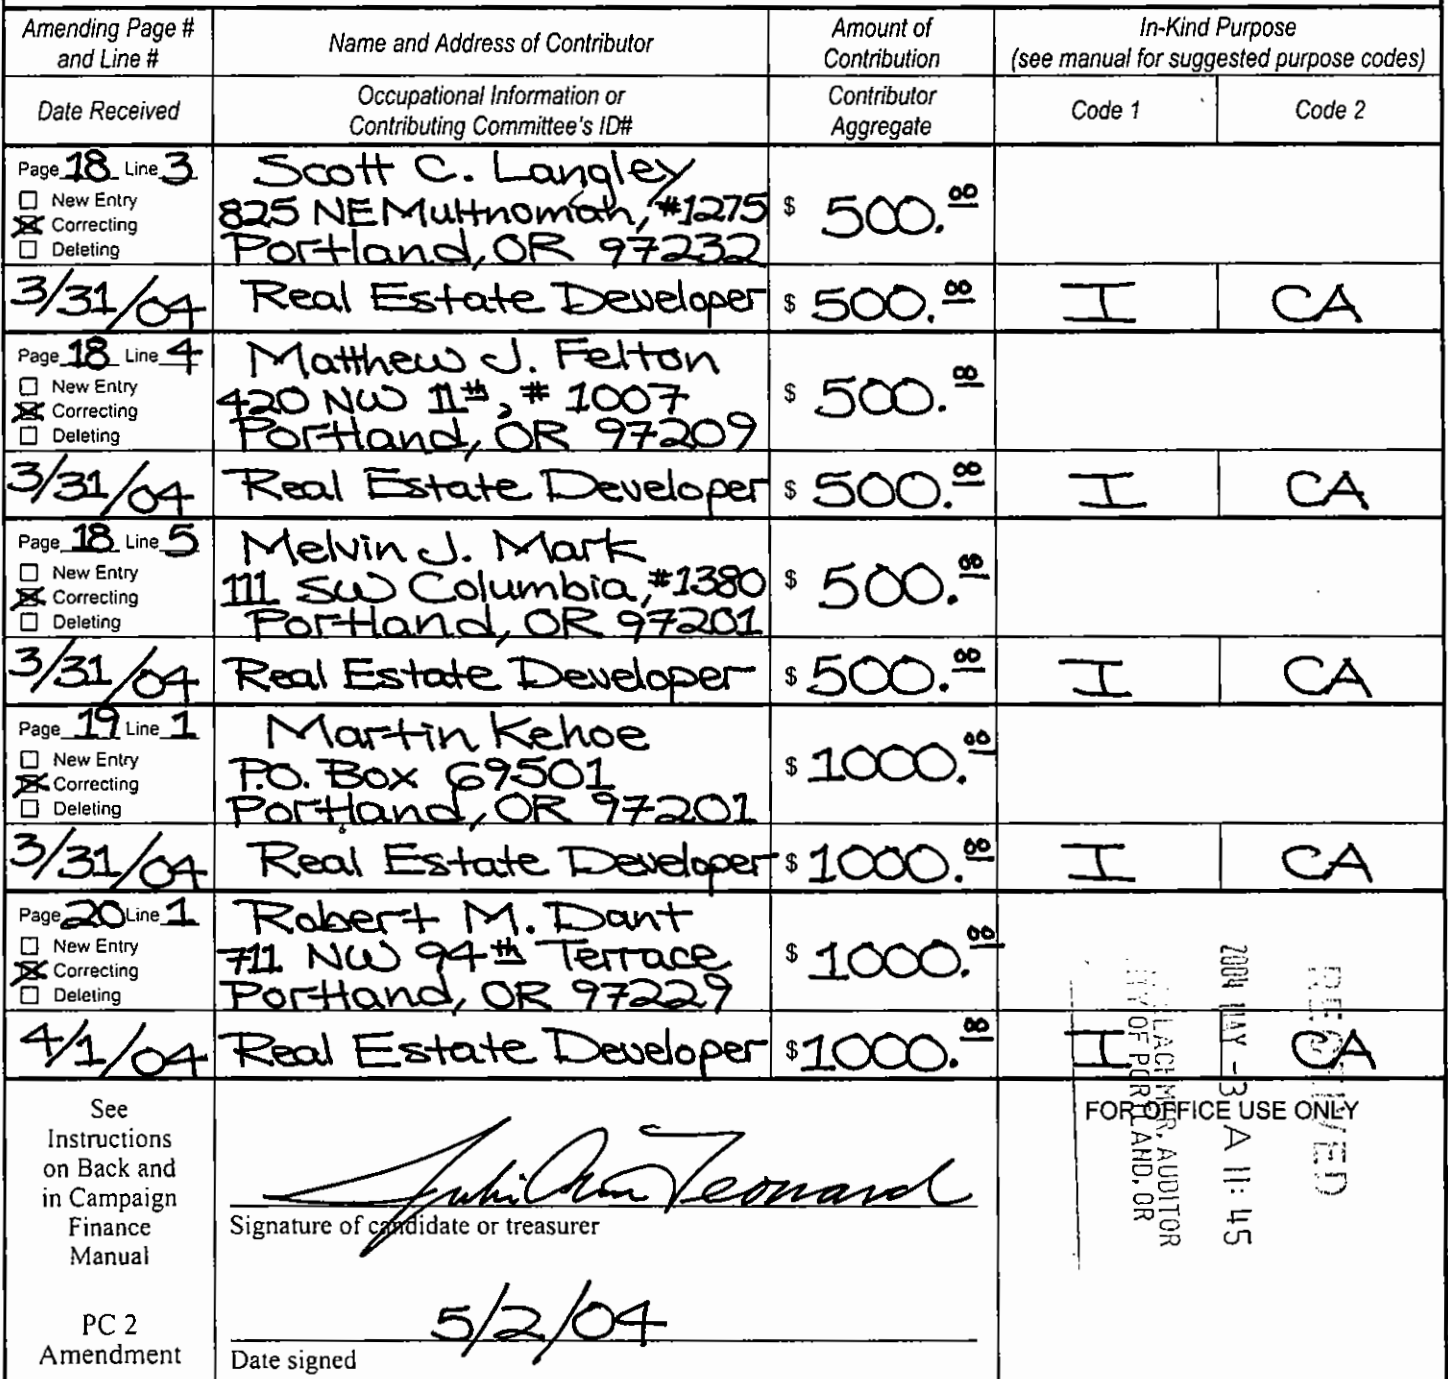 Amending Page # and Line #
Name and Address of Contributor
Amount of Contribution
In-Kind Purpose
(see manual for suggested purpose codes)
Date Received
Occupational Information or Contributing Committee's ID#
Contributor Aggregate
Code 1
Code 2
Page 18 Line 3
New Entry
Correcting
Deleting
Scott C. Langley
825 NE Multnomah, #1275
Portland, OR 97232
$ 500.00
3/31/04
Real Estate Developer
$ 500.00
I
CA
Page 18 Line 4
New Entry
Correcting
Deleting
Matthew J. Felton
420 NW 11th, # 1007
Portland, OR 97209
$ 500.00
3/31/04
Real Estate Developer
$ 500.00
I
CA
Page 18 Line 5
New Entry
Correcting
Deleting
Melvin J. Mark
111 SW Columbia, #1380
Portland, OR 97201
$ 500.00
3/31/04
Real Estate Developer
$ 500.00
I
CA
Page 19 Line 1
New Entry
Correcting
Deleting
Martin Kehoe
P.O. Box 69501
Portland, OR 97201
$ 1000.00
3/31/04
Real Estate Developer
$ 1000.00
I
CA
Page 20 Line 1
New Entry
Correcting
Deleting
Robert M. Dant
711 NW 94th Terrace
Portland, OR 97229
$ 1000.00
4/1/04
Real Estate Developer
$ 1000.00
I
CA
See
Instructions
on Back and
in Campaign
Finance
Manual
PC 2
Amendment
Signature of candidate or treasurer
5/2/04
Date signed
FOR OFFICE USE ONLY
RECEIVED
2004 MAY -3 A 11:45
AUDITOR
OF PORTLAND, OR